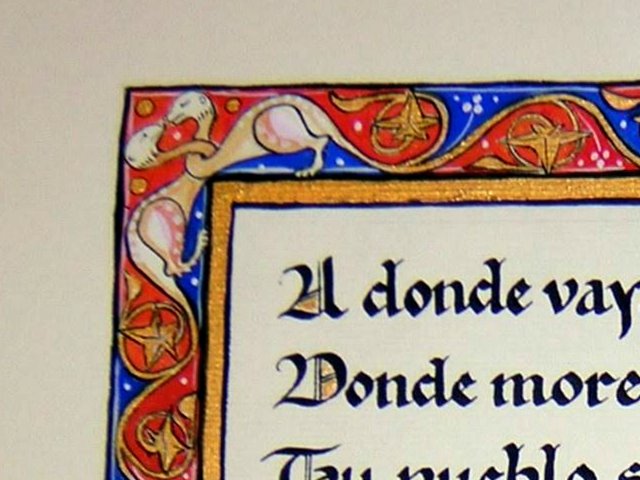 A donde vay
Donde more
Tu pueblo s